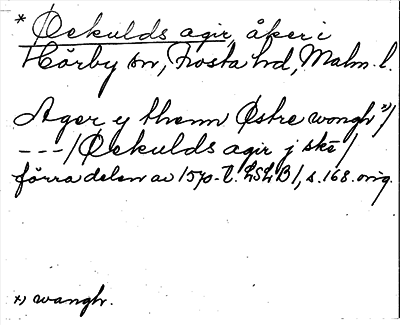 * Øekulds agir, åker i
Hörby sn, Frosta hd, Malm. l.
Ager y thenn Østre wongh x)/
---/ Øekulds agir j skē /
förra delen av 1570-t. LSLB /, s. 168. orig.
x) wangh.